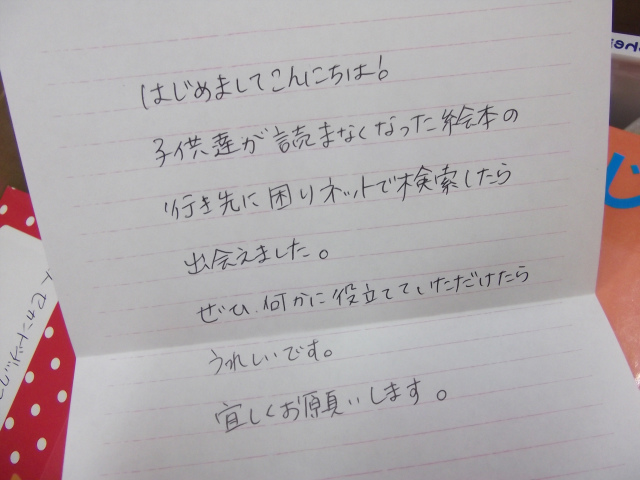 はじめましてこんにちは!
子供達が読まなくなった絵本の
行き先に困りネットで検索したら
出会えました。
ぜひ、何かに役立てていただけたら
うれしいです。
宜しくお願いします。